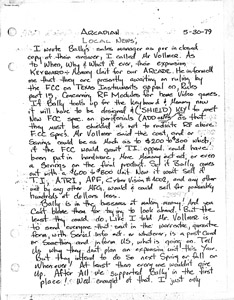 ARCADIAN 5-30-79
LOCAL NEWS,
I wrote Bally's sales manager as per inclosed
copy of their answer, I called Mr Vollmar. As
to When, Why & What if ever, their expansion
KEYBOARD & Memory Unit for our ARCADE. He informed
me that they are presently awaiting on ruling by
the FCC on TEXAS Instruments appeal on, Rule
part 15, Concerning RF Modules for home Video games.
If Bally tools up for the keyboard & Memory now
it will have to be designed & (SHIELD) KEY to meet
New FCC spec. on periferals (ADD ons) as that
they must be shielded as not to radiate RF above
FCC specs. Mr Vollmar said the cost, and or
Savings could be as Much as to $200 to $300 which,
if the FCC would grant T.I. appeal could have
been put in hardware, More Memory act ed, or even
a Savings on the end product. So if Bally comes
out with a $600 to $800 Unit Now it wont sell to
T.I., ATARI, APF, and any other
unit by any other MFG, would & could sell for probably
hundreds of dollars less.
Bally is in the business of making money! And you
Cant blame them for trying to look ahead! But the
least they could do, Like I told Mr Vollmar is
to send everyone that sent in the warrantie, garantee
form, with Serial info act. or whatever, is a post card
or Something and inform US, what is going on. Tell
us when they dont plan an expansion unit this Year.
But they intend to do so Next Spring or fall or
Whenever! At least then everyone wouldnt give
up. After All we Supported Bally in the first
place! Well enough of that. I just only